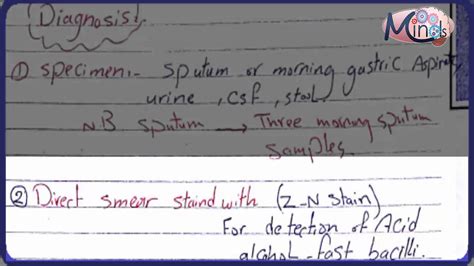 Minds
Diagnosis!
① Specimen:- Sputum or morning gastric Aspirat
urine, CSF, stool.
NB sputum → Three morning sputum
samples
② Direct smear staind with (Z-N stain)
For detection of Acid
alcohol-fast bacilli.